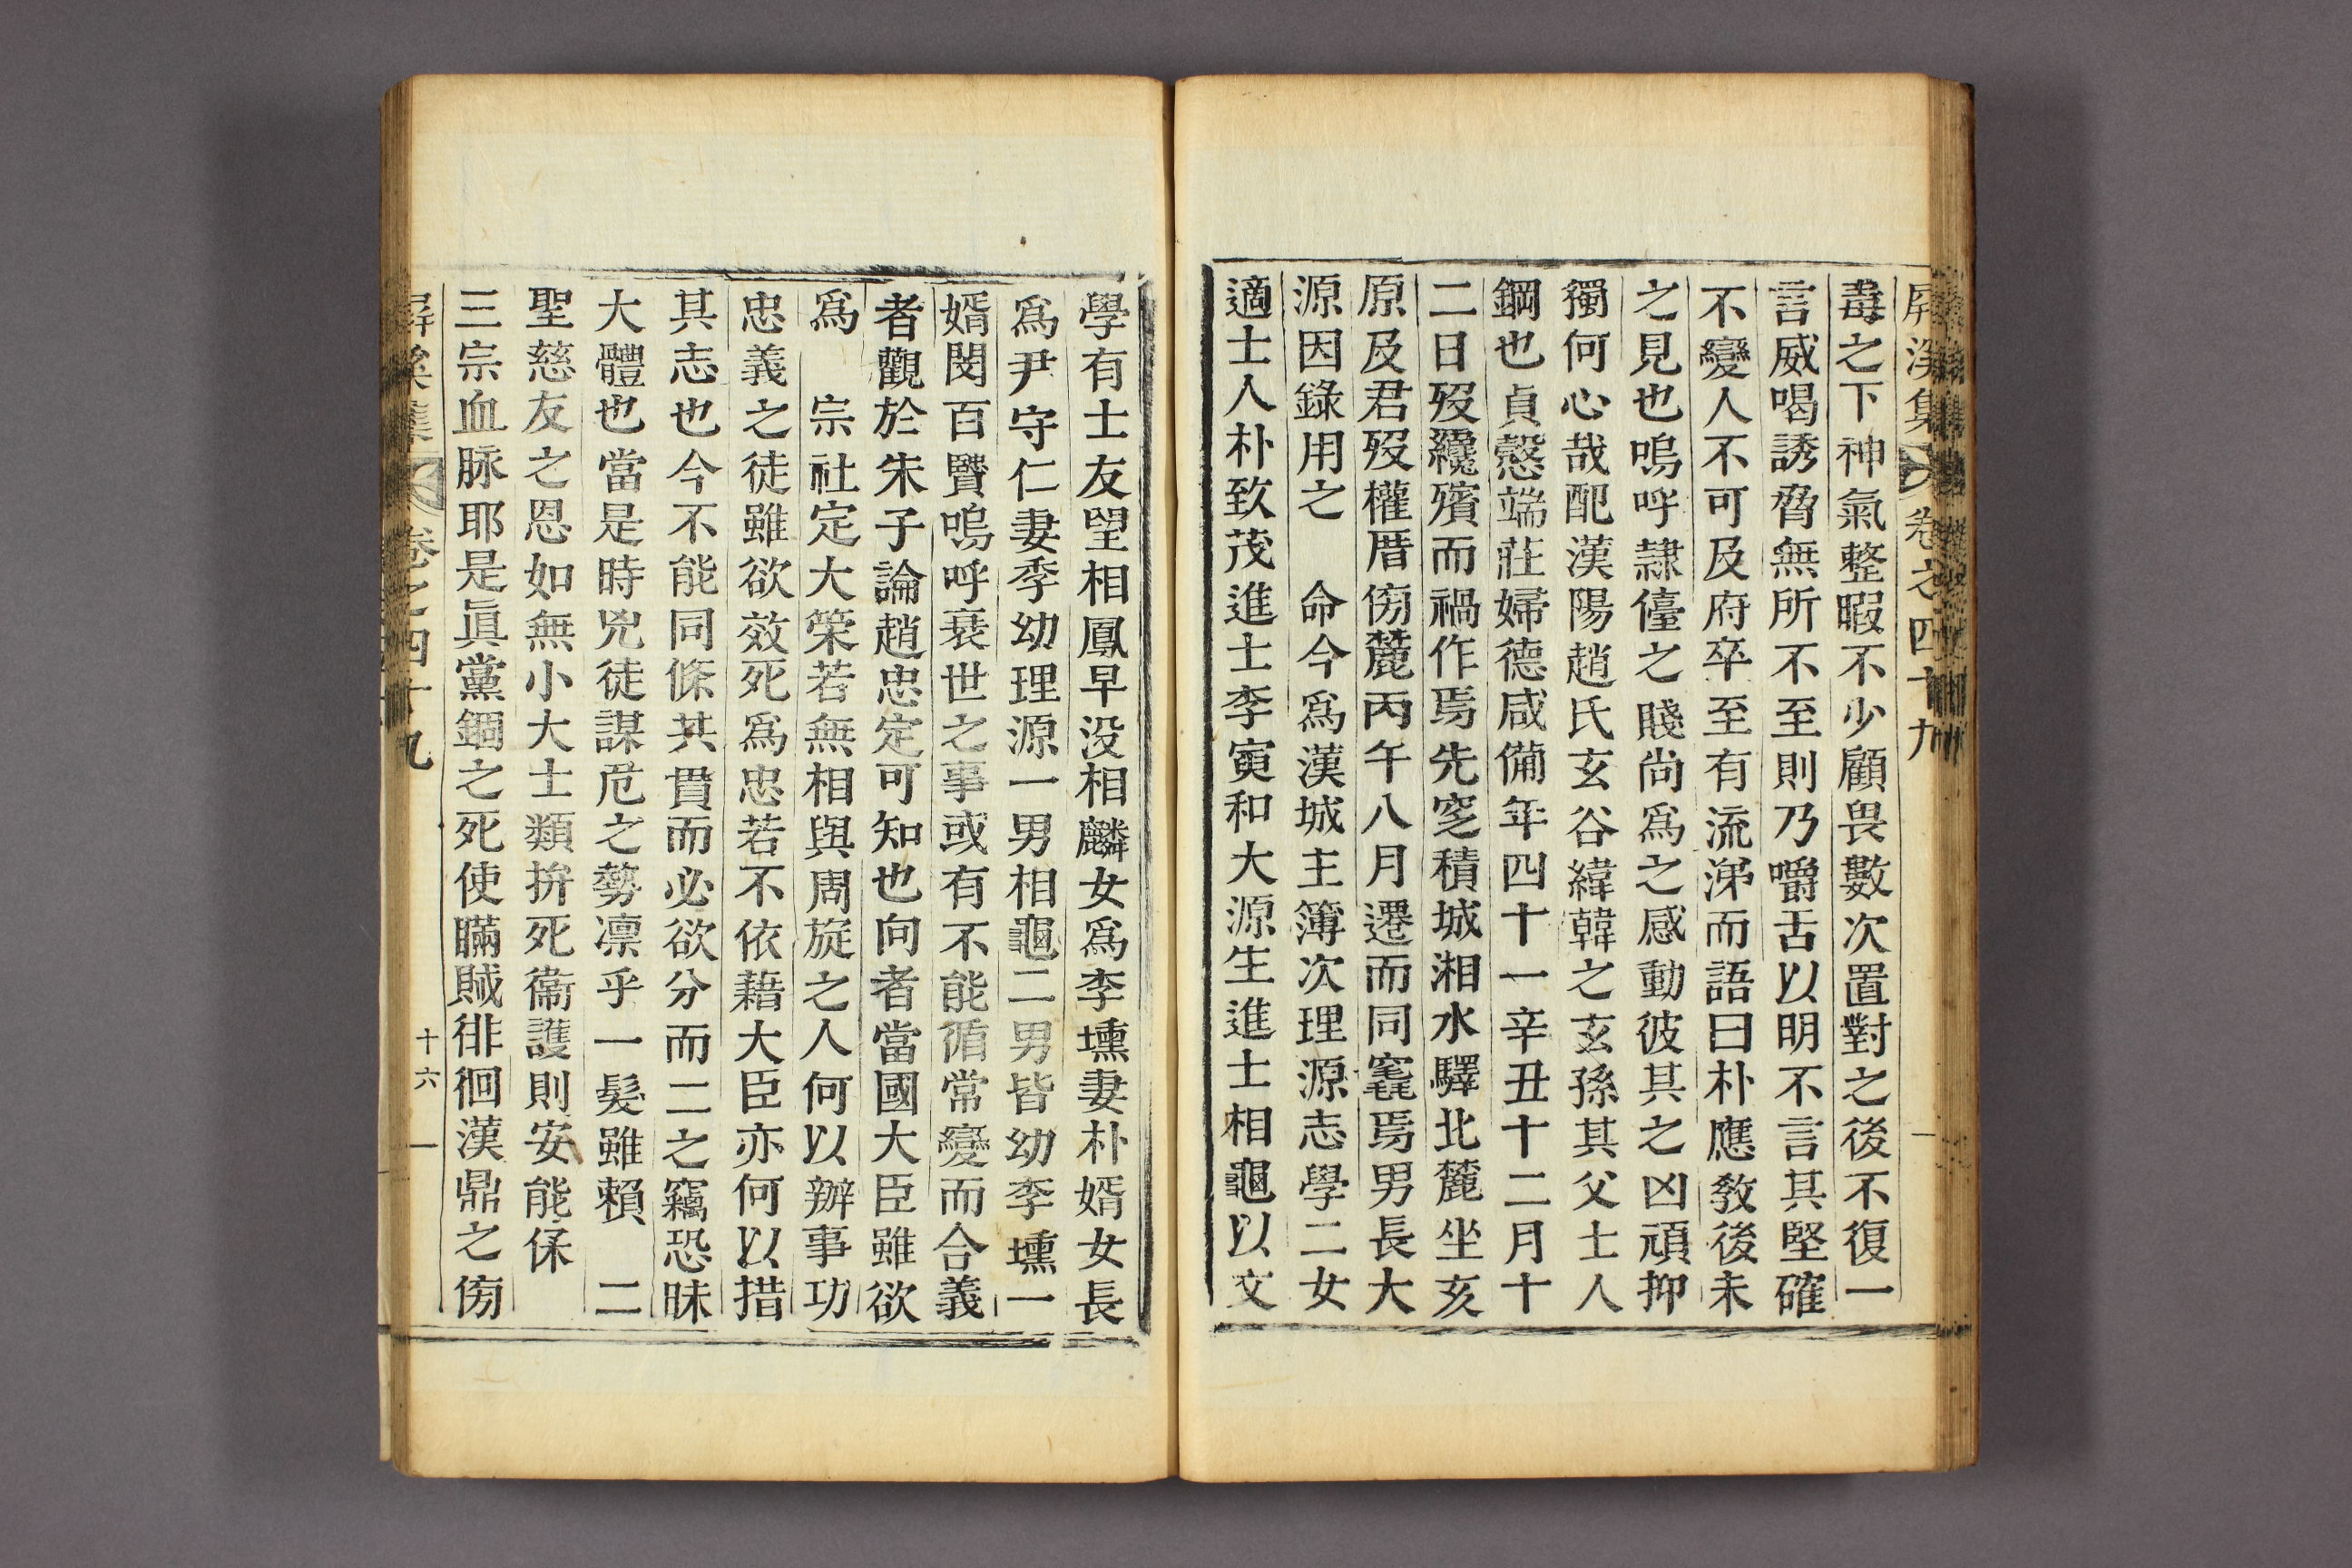 屏溪集 卷之四十九
毒之下神氣整暇不少顧畏數次置對之後不復一
言威喝誘脅無所不至則乃嚼舌以明不言其堅確
不變人不可及府卒至有流涕而語曰朴應敎後未
之見也嗚呼隷儓之賤尙爲之感動彼其之凶頑抑
獨何心哉配漢陽趙氏玄谷緯韓之玄孫其父士人
鋼也貞慤端莊婦德咸備年四十一辛丑十二月十
二日歿纔殯而禍作焉先窆積城湘水驛北麓坐亥
原及君歿權厝傍麓丙午八月遷而同窆焉男長大
源因錄用之 命今爲漢城主簿次理源志學二女
適士人朴致茂進士李寅和大源生進士相龜以文
學有士友望相鳳早没相麟女爲李壎妻朴婿女長
爲尹守仁妻季幼理源一男相龜二男皆幼李壎一
婿閔百贒嗚呼衰世之事或有不能循常變而合義
者觀於朱子論趙忠定可知也向者當國大臣雖欲
爲 宗社定大策若無相與周旋之人何以辦事功
忠義之徒雖欲效死爲忠若不依藉大臣亦何以措
其志也今不能同條其貫而必欲分而二之竊恐昧
大體也當是時兇徒謀危之勢凛乎一髮雖賴 二
聖慈友之恩如無小大士類拚死衞護則安能保
三宗血脉耶是眞黨錮之死使瞞賊徘徊漢鼎之傍
屏溪集 卷之四十九 十六